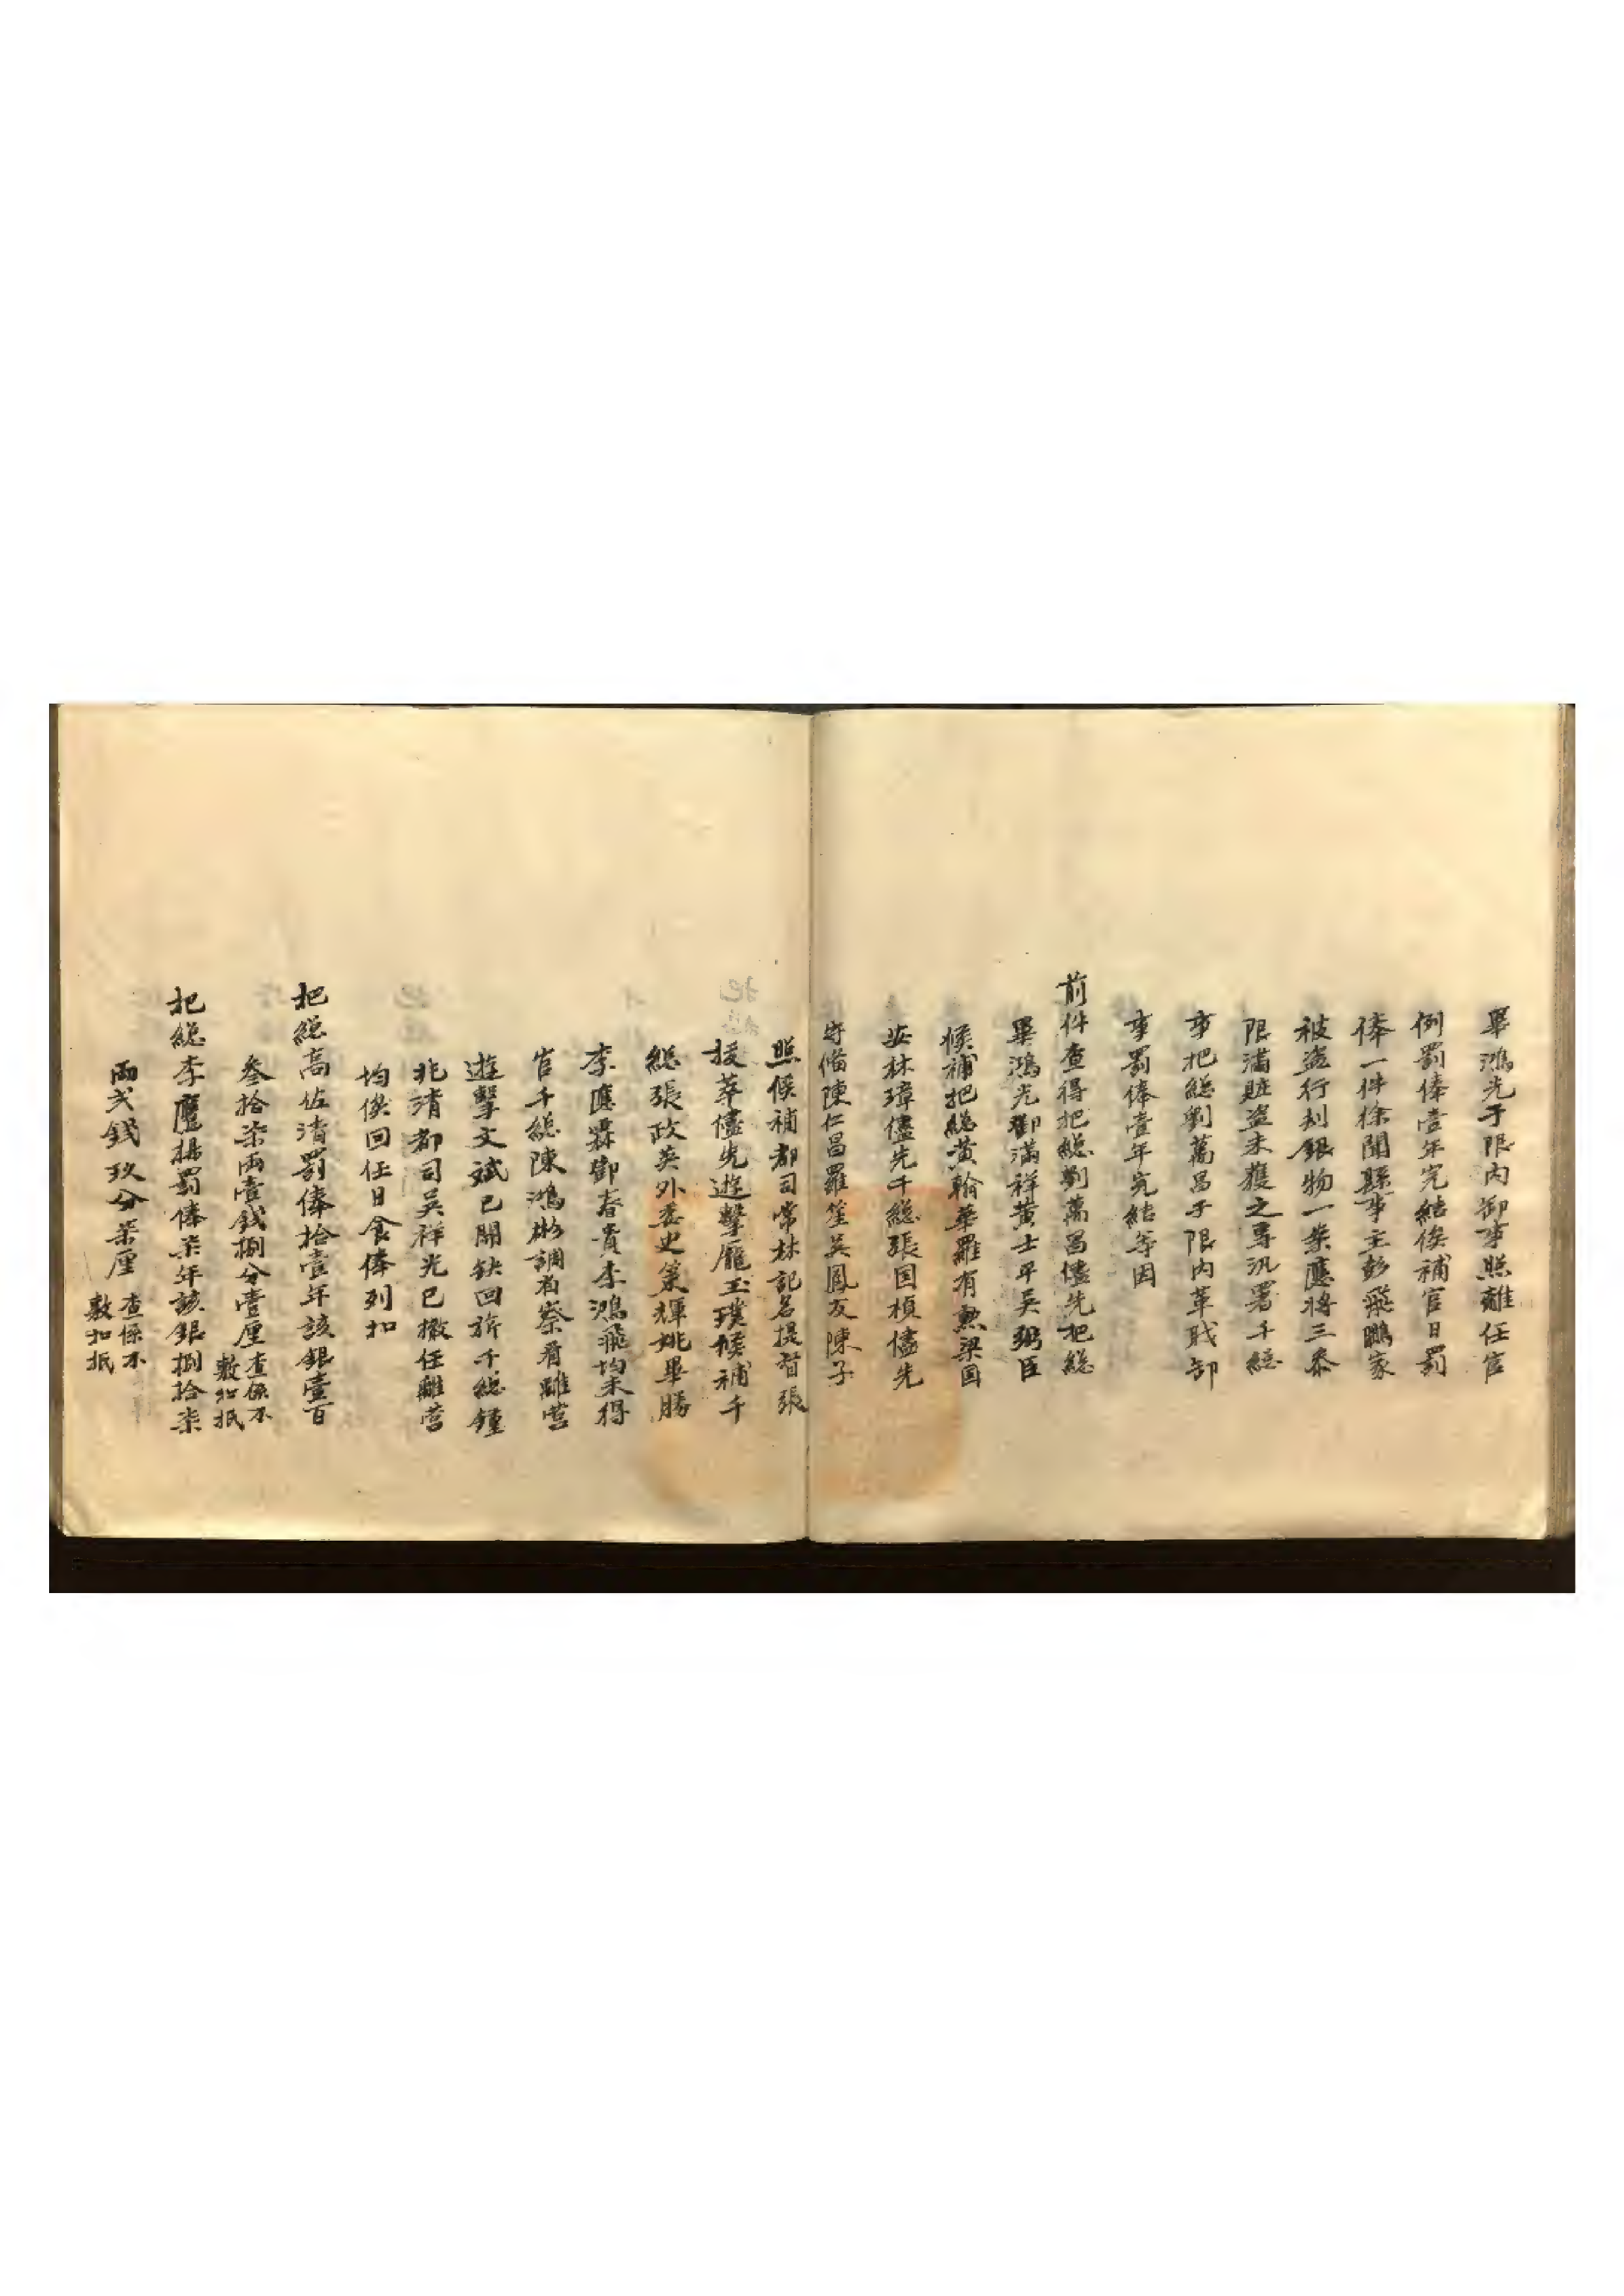 畢鴻光于限内卸事照離任官
例罰俸壹年完結俟補官日罰
俸一件徐聞縣事主彭飛鵬家
被盜行刦銀物一案應將三叅
限滿賍盜未獲之專汛署千総
事把総劉萬昌于限内革職卸
事罰俸壹年完結等因
前件查得把総劉萬昌儘先把総
畢鴻光鄧滿祥黄士平吳弼臣
候補把総黄翰華羅有勲梁国
安林璋儘先千総張国楨儘先
守俻陳仁昌羅笙吳鳳友陳子
照候補都司常林記名提督張
拔萃儘先遊擊龐玉璞候補千
総張政英外委史篆輝姚畢勝
李應霖鄧春貴李鴻飛均未得
官千総陳鴻彬調省察看離营
遊擊文斌已開缺回旂千総鍾
兆清都司吳祥光已撤任離营
均俟回任日食俸列扣
把総高佐清罰俸拾壹年該銀壹百
叁拾柒両壹錢捌分壹厘查係不
敷扣抵
把総李鷹揚罰俸柒年該銀捌拾柒
両弍錢玖分柒厘查係不
敷扣抵